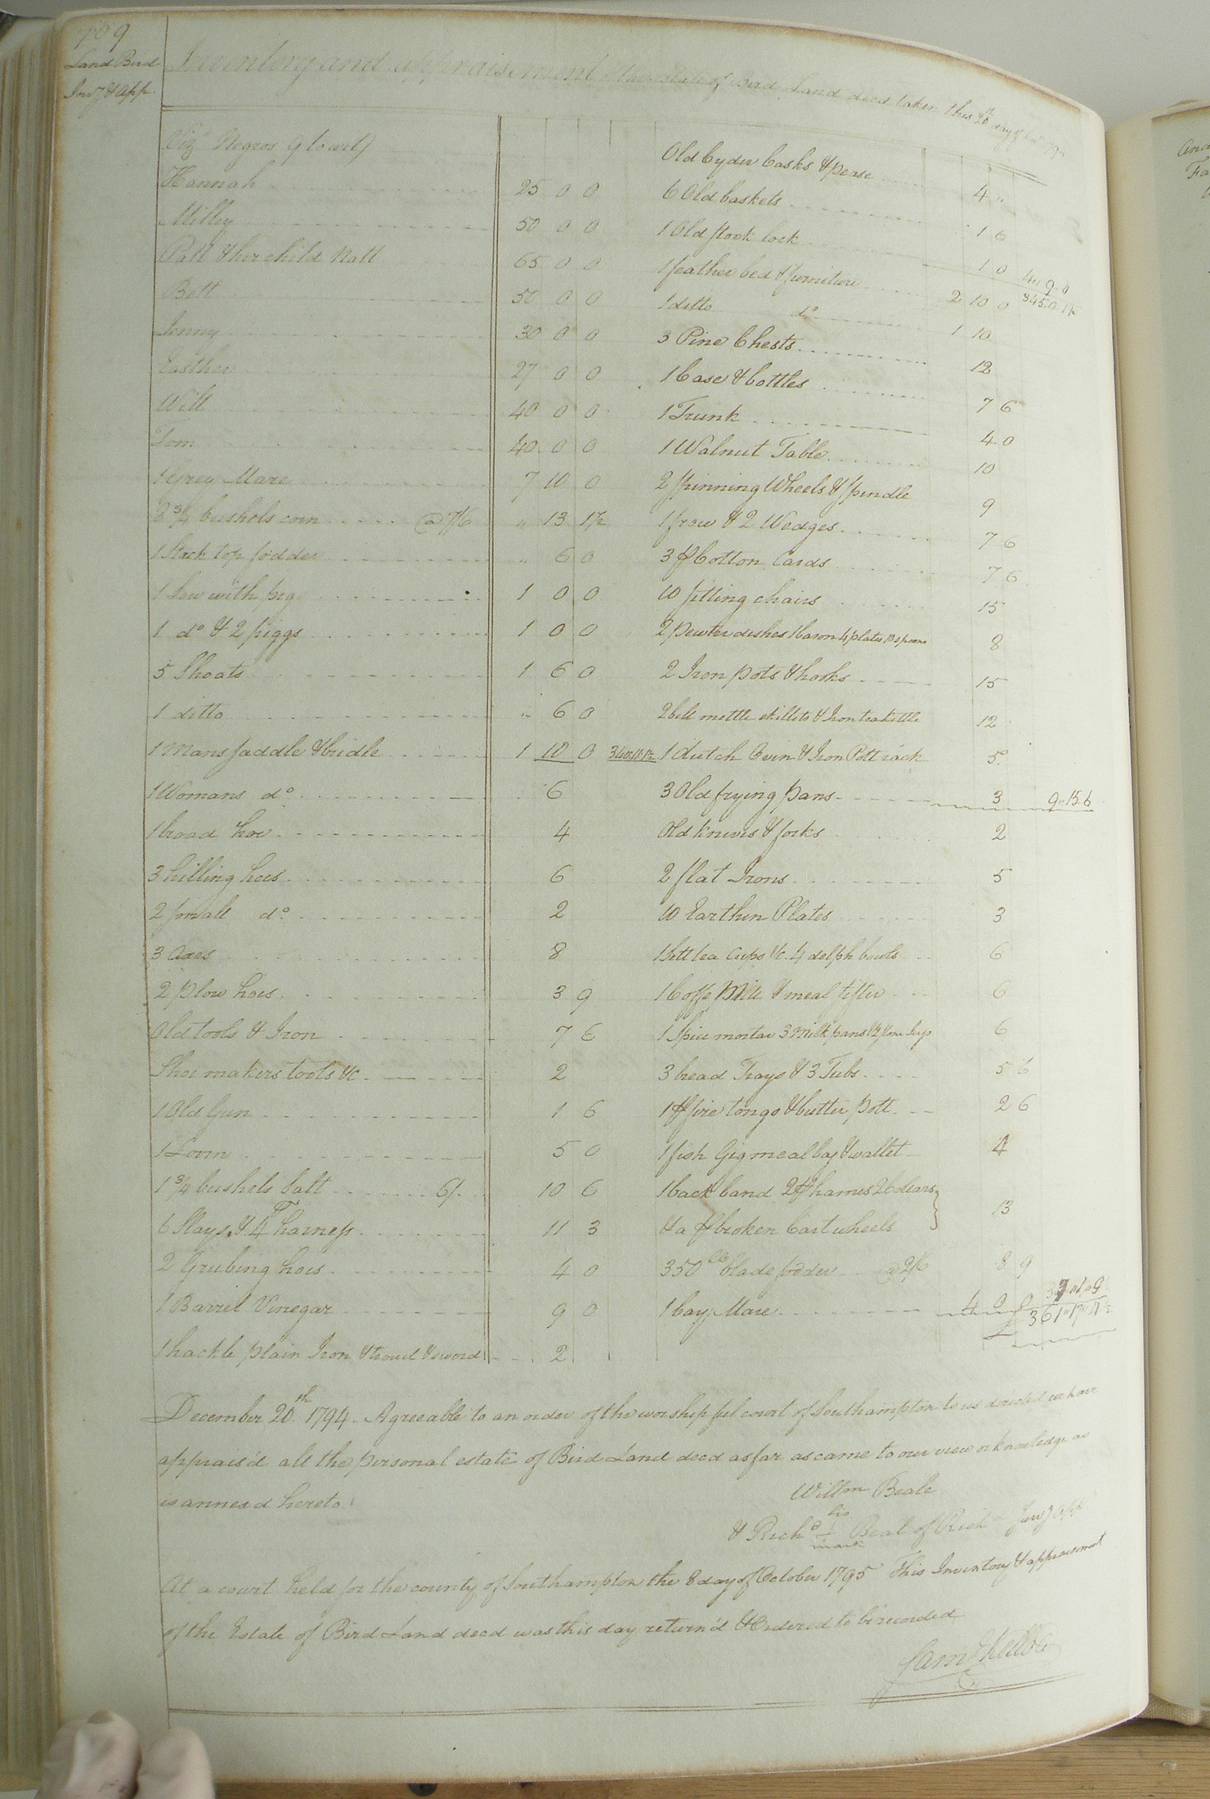 Land Bird
Inv.y & App.
Inventory and appraisement of the estate of Bird Land decd taken this 20th day of
Viz Negros 9 to wit)
Hannah 25 0 0
Milley 50 0 0
Patt & her child Natt 65 0 0
Bett 50 0 0
Jenny 30 0 0
Easther 27 0 0
Will 40 0 0
Tom 40 0 0
1 grey Mare 7 10 0
2 3/4 bushels corn @ 7/6 " 13 1½
1 Stack top fodder " 6 0
1 Sow with pig 1 0 0
1 do & 2 piggs 1 0 0
5 Shoats 1 6 0
1 ditto " 6 0
1 Mans saddle & bridle 1 10 0
1 Womans do 6
1 broad hoe 4
3 hilling hoes 6
2 small do 2
3 Axes 8
2 plow hoes 3 9
Old tools & Iron 7 6
Shoe makers tools &c 2
1 Old Gun 1 6
1 Loom 5 0
1 3/4 bushels Salt 6/ 10 6
6 Slays, & 4 pr harness 11 3
2 Grubing hoes 4 0
1 Barril Vinegar 9 0
1 hackle plain Iron & trowel & sword 2
Old Cyder Casks & pease 4 "
6 Old baskets 1 6
1 Old stock lock 1 0
1 feather bed & furniture 2 10 0
1 ditto do 1 10
3 Pine Chests 12
1 Case & bottles 7 6
1 Trunk 4 0
1 Walnut Table 10
2 spinning Wheels & spindle 9
1 frow & 2 Wedges 7 6
3 pr Cotton Cards 7 6
10 sitting chairs 15
2 pewter dishes 1 bason 4 plates 12 spoons 8
2 Iron pots & hooks 15
2 bell mettle skillets & Iron teakettle 12
1 dutch Oven & Iron Pott rack 5
3 Old frying pans 3 9"15"6
Old knives & forks 2
2 flat Irons 5
10 Earthen Plates 3
1 Sett tea Cups &c. 4 delph bowls 6
1 Coffe Mill & meal sifter 6
1 Spice mortar 3 Milk pans 6
3 bread Trays & 3 Tubs 5 6
1 pr fire tongs & butter pott 2 6
1 fish Gig meal bag & wallet 4
1 back band 2 pr hames 2 Collars
& a pr broken Cart wheels 13
350 lb blade fodder @ 2/6 8 9
1 bay Mare 4 0 0
December 20th 1794. Agreeable to an order of the worshipful court of Southampton to us directed we have
apprais'd all the personal estate of Bird Land decd as far as came to our view or knowledge as
is annexd hereto.
Willm Beale
& Richd his mark Beal of Rich
At a court held for the county of Southampton the 8 day of October 1795 This Inventory & appraisement
of the Estate of Bird Land decd was this day return'd & Ordered to be recorded